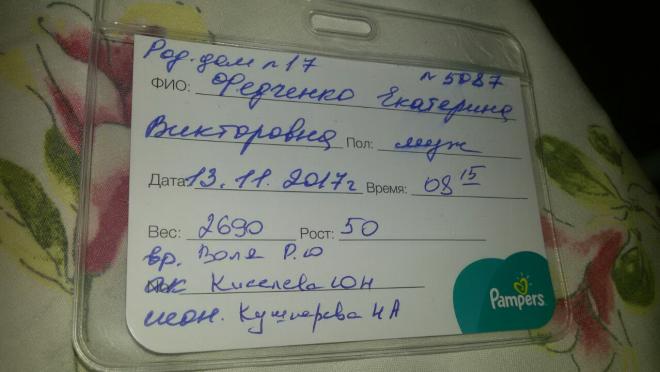 Род. дом №17
№ 5087
ФИО: Федченко Екатерина
Викторовна Пол: муж
Дата: 13.11.2017г Время: 08 15
Вес: 2690 Рост: 50
вр. Воля Р.Ю
ак Киселева ЮН
неон. Кушнарева НА
Pampers